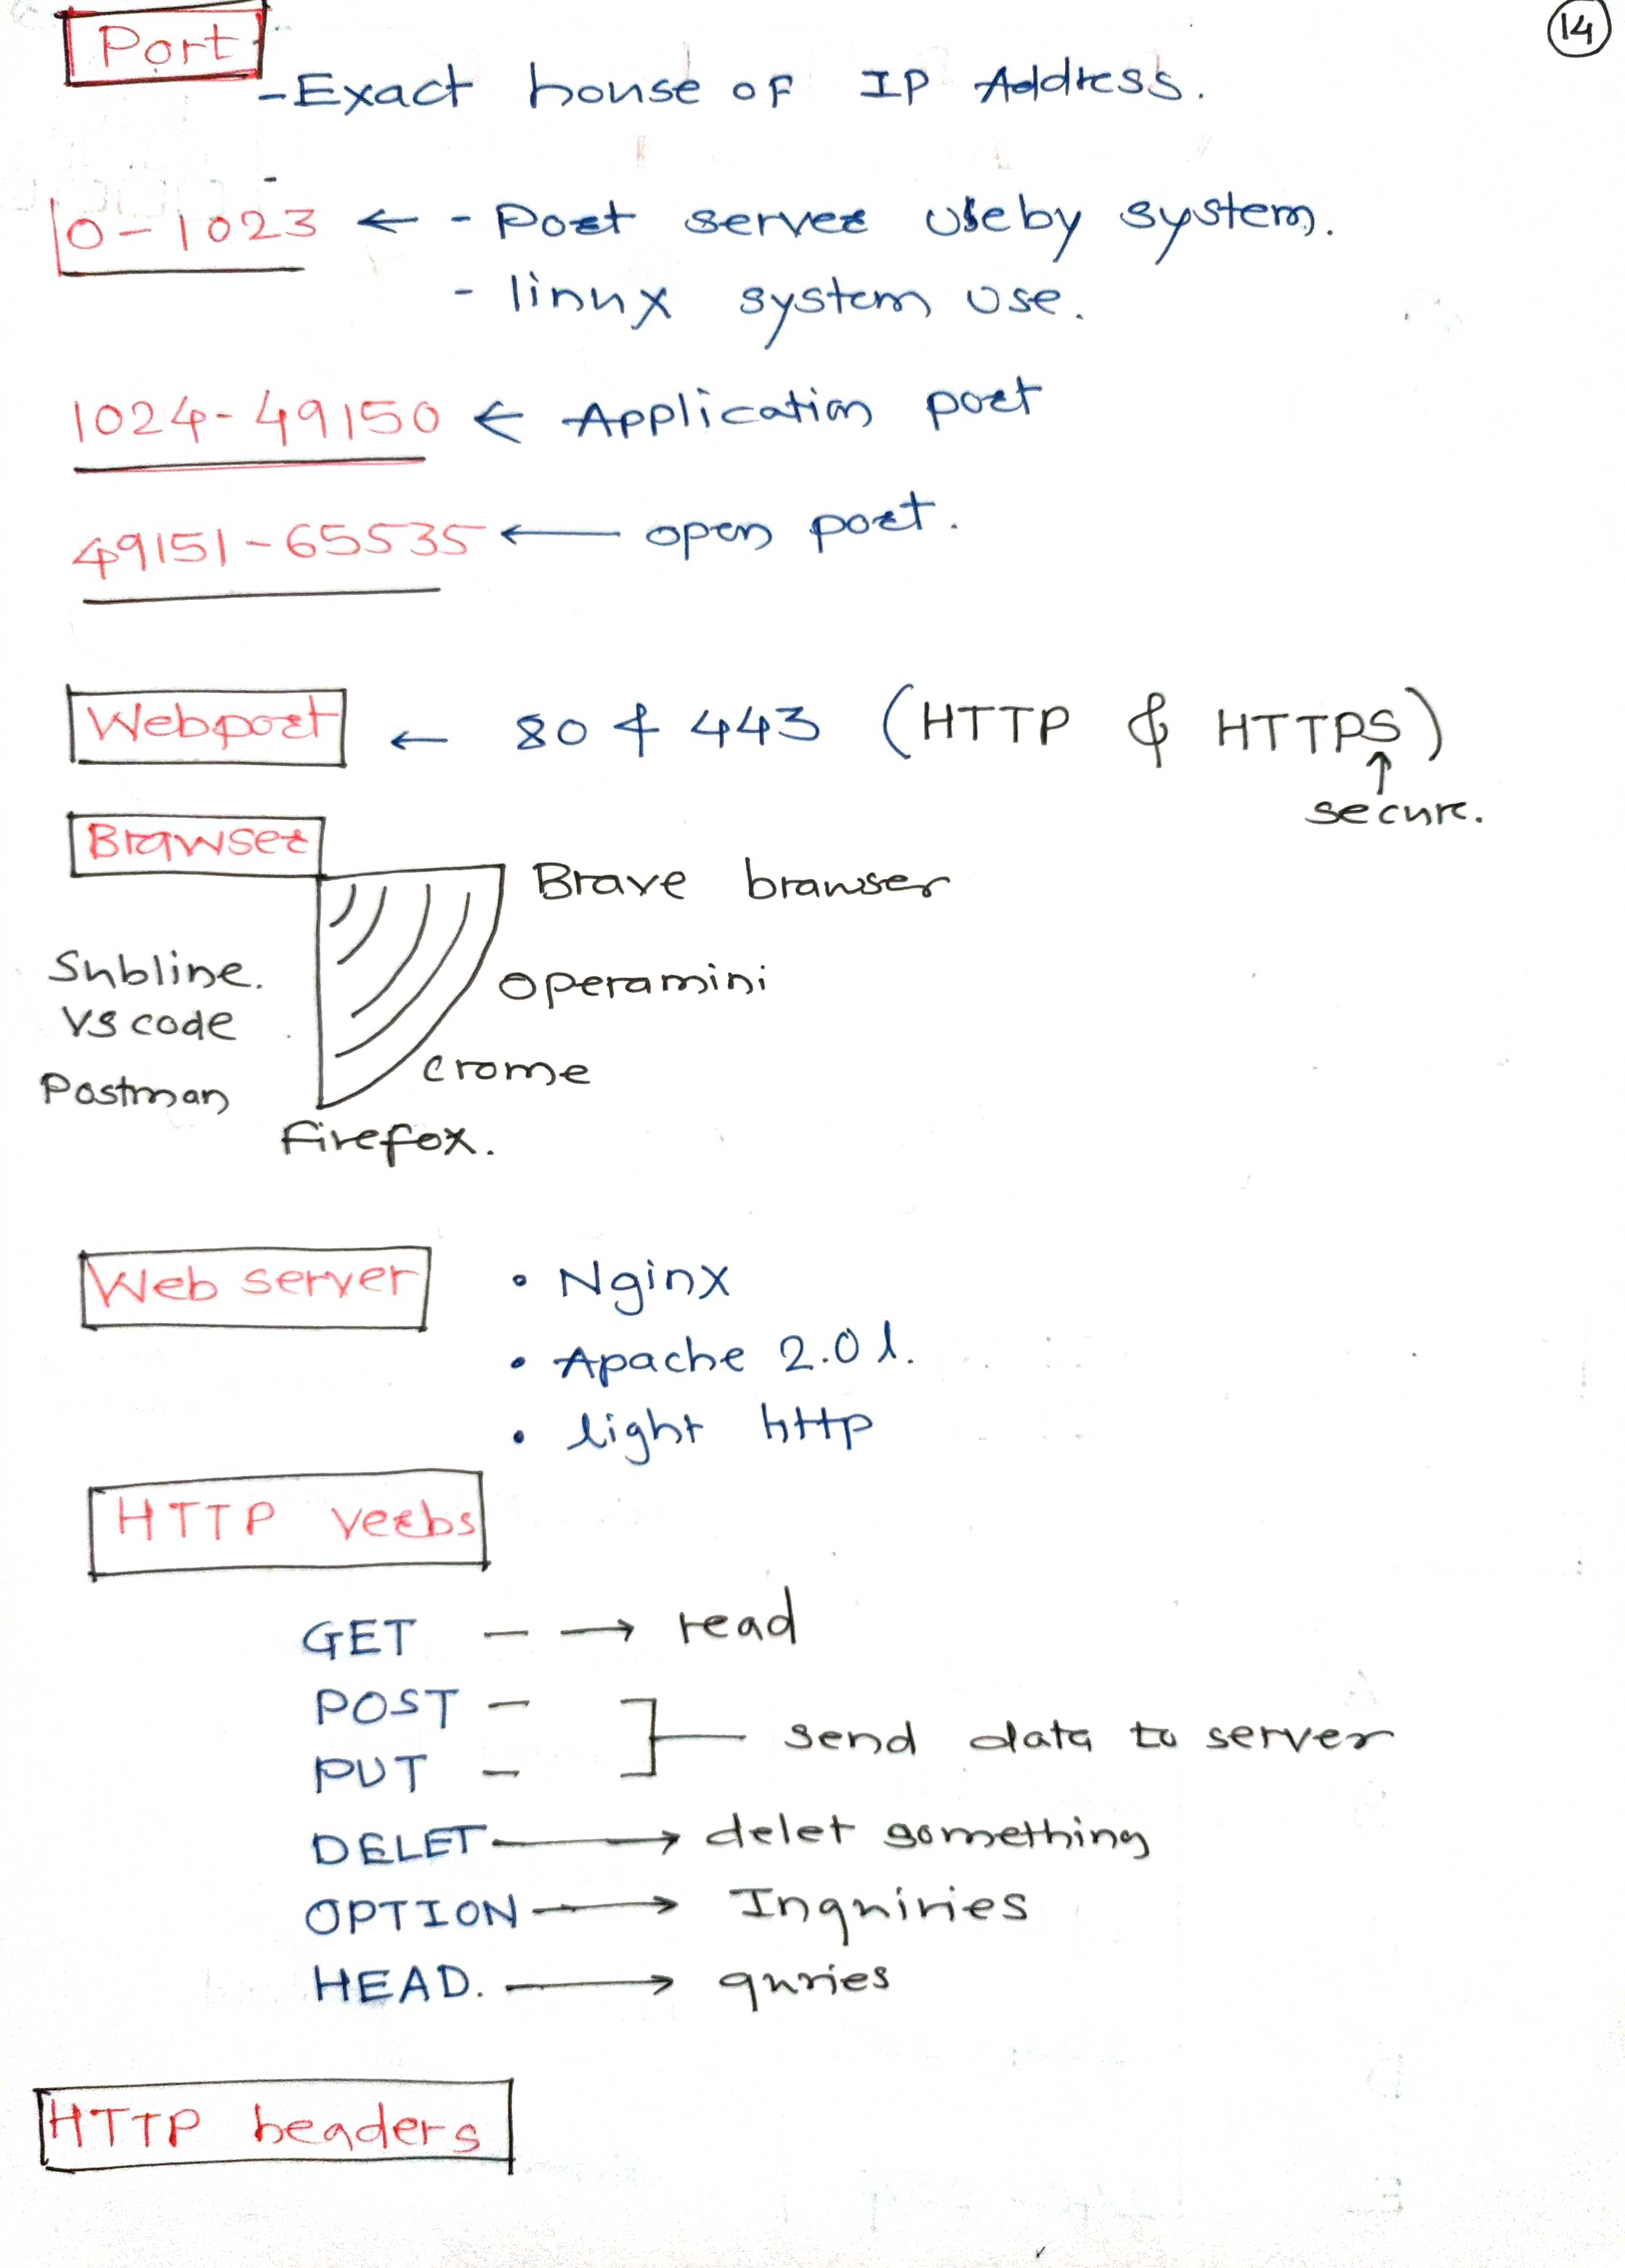 14
Port
- Exact house of IP Address.
0 - 1023 ← - Port server use by system.
- linux system use.
1024 - 49150 ← Application port
49151 - 65535 ← open port.
Webport ← 80 & 443 (HTTP & HTTPS)
↑
secure.
Brawser
Brave brawser
Subline.
Operamini
VS code
crome
Postman
firefox.
Web server
• Nginx
• Apache 2.0 l.
• light http
HTTP verbs
GET - → read
POST -
send data to server
PUT -
DELET → delet something
OPTION → Inquiries
HEAD. → quries
HTTP headers